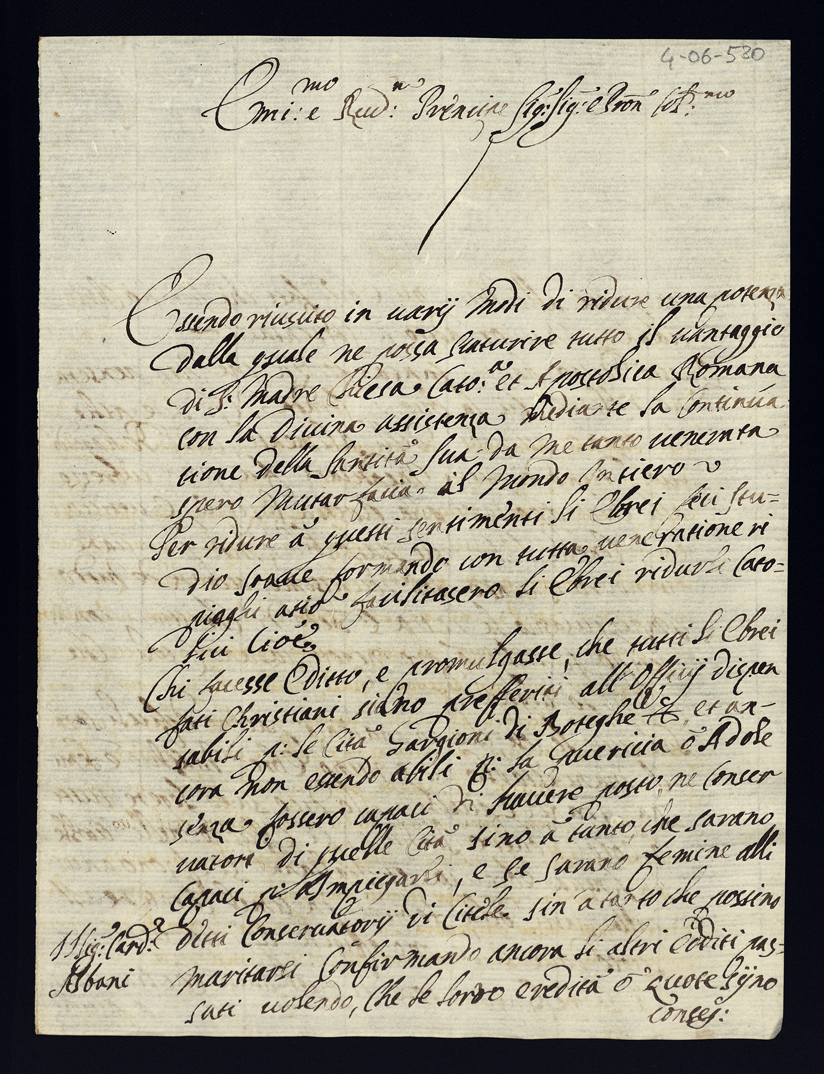 4-06-530
Emi:mo e Rud:n Prencipe Sig: Sig: e Pron Col:mo
Essendo riuscito in varij Modi di ridure una potenza
dalla quale ne possa scaturire tutto il vantaggio
di S: Madre Chiesa Cato:a et Apostolica Romana
con la Divina assistenza Mediante la Continua
tione della Santità Sua da me tanto venerata
spero Mutar facia al Mondo Intiero
Per ridure à questi sentimenti li Ebrei feci stu=
dio soave formando con tutta veneratione ri
pieghi acciò facilitasero li Ebrei ridursi Cato=
lici Cioè
Chi facesse Editto, e promulgasse, che tutti li Ebrei
fati Christiani siano prefferiti all Offitij dispen
sabili p: le Cità Gargioni di Boteghe et an-
cora non esendo abili p: la puericia ò Adole
senza fossero capaci di havere posto ne Conser
vatori di quelle Cità sino à tanto che sarano
Capaci p: Impiegarsi, e se sarano femine alli
detti Conservatorij di Citele sin a tanto che possino
maritarsi Confirmando ancora li altri Editti pas=
sati volendo, Che le loro eredità ò quote sijno
conseg:
Sig: Card:e
Albani